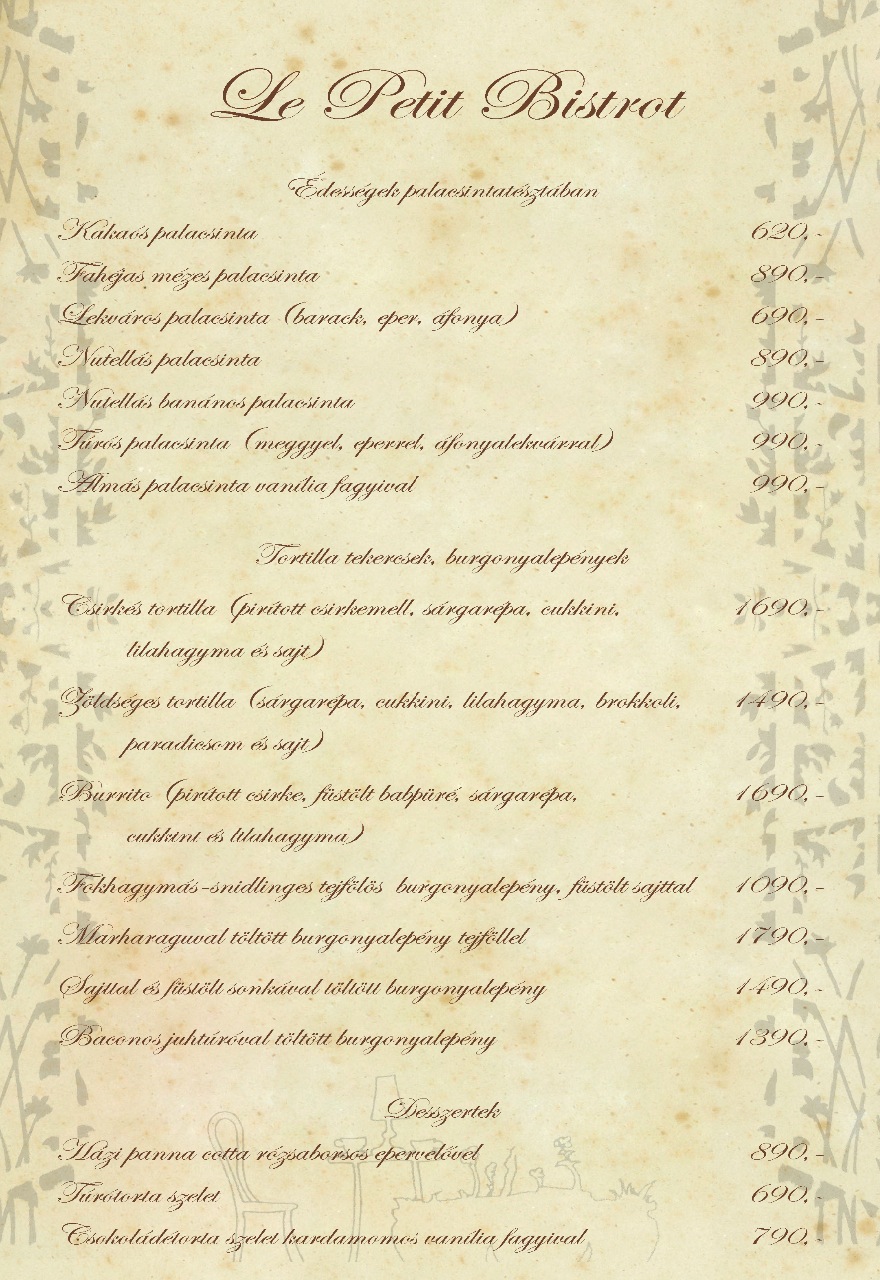 Le Petit Bistrot
Édességek palacsintatésztában
Kakaós palacsinta 620,-
Fahéjas mézes palacsinta 890,-
Lekváros palacsinta (barack, eper, áfonya) 690,-
Nutellás palacsinta 890,-
Nutellás banános palacsinta 990,-
Túrós palacsinta (meggyel, eperrel, áfonyalekvárral) 990,-
Almás palacsinta vanília fagyival 990,-
Tortilla tekercsek, burgonyalepények
Csirkés tortilla (pirított csirkemell, sárgarépa, cukkini, 1690,-
lilahagyma és sajt)
Zöldséges tortilla (sárgarépa, cukkini, lilahagyma, brokkoli, 1490,-
paradicsom és sajt)
Burrito (pirított csirke, füstölt babpüré, sárgarépa, 1690,-
cukkini és lilahagyma)
Fokhagymás-snidlinges tejfölös burgonyalepény, füstölt sajttal 1090,-
Marharaguval töltött burgonyalepény tejföllel 1790,-
Sajttal és füstölt sonkával töltött burgonyalepény 1490,-
Baconos juhtúróval töltött burgonyalepény 1390,-
Desszertek
Házi panna cotta rózsaborsos epervelővel 890,-
Túrótorta szelet 690,-
Csokoládétorta szelet kardamomos vanília fagyival 790,-